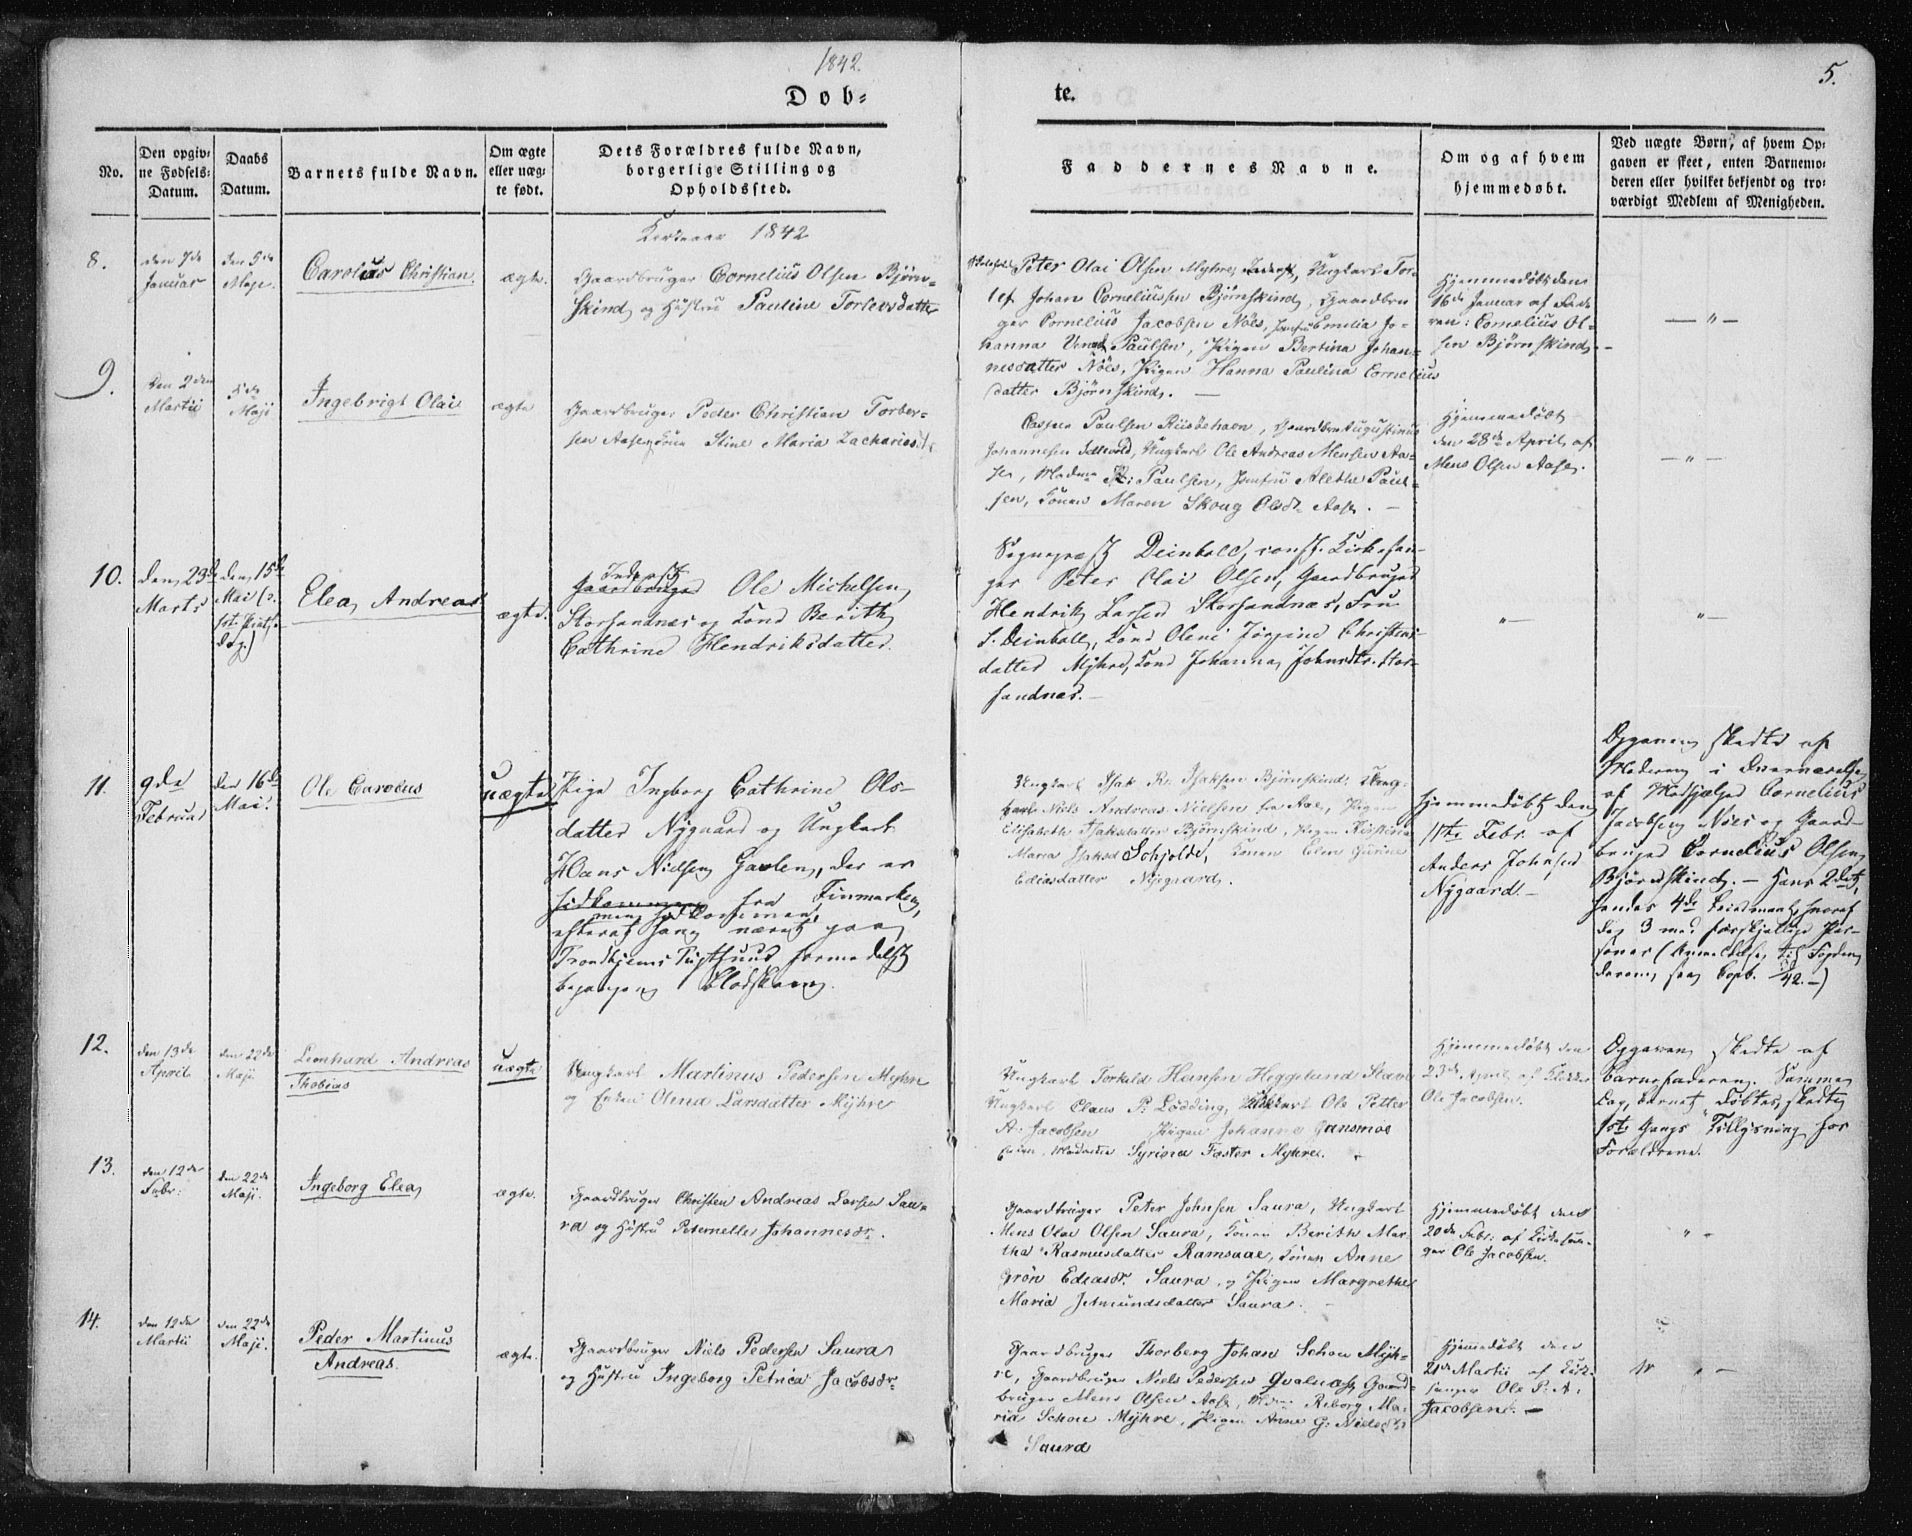 1842.
5.
Døb=
te.
No.
Den opgiv=
ne Fødsels=
Datum.
Daabs
Datum.
Barnets fulde Navn.
Om ægte
eller uæg=
te født.
Dets Forældres fulde Navn,
borgerlige Stilling og
Opholdssted.
Faddernes Navne.
Om og af hvem
hjemmedøbt.
Ved uægte Børn, af hvem Op=
gaven er skeet, enten Barnemo=
deren eller hvilket bekjendt og tro=
værdigt Medlem af Menigheden.
Kirkeaar 1842
8.
den 7de
Januar
den 5te
Maji.
Carolus Christian.
ægte.
Gaardbruger Cornelius Olsen Bjørn=
skind og Hustru Pauline Torlevsdatter
Peter Olai Olsen Myhre, Ungkarl Tor=
lef Johan Corneliussen Bjørnskind, Gaardbru
ger Cornelius Jacobsen Nöes, Jomfru Emilia Jo=
hanna Paulsen, Pigen Bertina Johan=
nesdatter Nöes, Pigen Hanna Paulina Cornelius
datter Bjørnskind. —
Hjemmedøbt den
16de Januar af Fade
ren: Cornelius Ol=
sen Bjørnskind. —
— " —
9.
Den 2den
Martii
5te
Maji
Ingebrigt Olai
ægte
Gaardbruger Peder Christian Torber=
sen Aase, Stine Maria Zachariasd.
Casper Paulsen Riisöehavn, Gaardbr. Augustinus
Johannesen, Ungkarl Ole Andreas Monsen Aa=
se, Madme Paulsen, Jomfru Alethe Paul=
sen, Konen Maren Skoug Olsdr Aase. —
Hjemmedøbt
den 28de April af
Mons Olsen Aase.
— " —
10.
den 23de
Marts
den 15de
Mai (1
ste Pintse
dag.)
Elea Andrea
ægte.
Inderst
Gaardbruger Ole Michelsen
Storsandnæs og Kone Berith
Cathrine Hendriksdatter.
Sognepræst Deinboll, const. Kirkesan=
ger Peter Olai Olsen, Gaardbruger
Hendrik Larsen Storsandnæs, Fru
S. Deinboll, Kone Oleni Jörgine Christens
datter Myhre, Kone Johanna Johnsdtr. Stor=
sandnæs. —
" —
" —
11.
9de
Februar
den 16de
Mai.
Ole Carolus
uægte
Pige Ingborg Cathrine Ols=
datter Nygaard og Ungkarl
Hans Nielsen Gaulen, der er
hidkommen fra Finmarken,
efterat have været paa
Trondhjems Tugthuus formedelst
begangen Blodskam.
Ungkarl Isak R. Isaksen Bjørnskind, Ung=
karl Niels Andreas Nielsen fra Aase, Pigen
Elisabeth Isaksdatter Bjørnskind, Pigen Kirstina
Maria Isaksd Schjolde, Konen Elen Gurine
Ediasdatter Nygaard.
Hjemmedøbt den
11te Febr. af
Anders Johnsen
Nygaard. —
Opgaven skedte af
Moderen i Overværelse
af Medhjælper Cornelius
Jacobsen Nöes og Gaard=
bruger Cornelius Olsen
Bjørnskind. — Hans 2det,
hendes 4de Leiermaal, hvoraf
de 3 med forskjellige Per=
soner (Anmeldelse til Fogden
derom, see Copb. /42. —)
12.
den 13de
April
den 22de
Maji
Leonhard Andreas
Thobias
uægte
Ungkarl Martinus Pedersen Myhre
og Enken Olena Larsdatter Myhre
Ungkarl Torkild Hansen Heggelund Stave
Ungkarl Claus P. Lødding, Ungkarl Ole Petter
A. Jacobsen Pigen Johanne Gansmoe
Enken, Madame Syrina Foster Myhre. —
Hjemmedøbt den
23de April af Klokker
Ole Jacobsen.
Opgaven skedte af
Barnefaderen. Samme
Dag, Barnet døbtes, skedte
1ste Gangs Tillysning for
Forældrene.
13.
den 12te
Febr:
den 22de
Maji.
Ingeborg Elea
ægte.
Gaardbruger Christen Andreas Larsen Sau=
ra og Hustru Peternelle Johannesdr.
Gaardbruger Peter Johnsen Saura, Ungkarl
Mons Olai Olsen Saura, Konen Berith Mar=
tha Rasmusdatter Ramsaae, Konen Anne
Grön Ediasdr. Saura, og Pigen Margrethe
Maria Amundsdatter Saura. —
Hjemmedøbt den
20de Febr: af Kirkesan=
ger Ole Jacobsen.
" —
14.
den 12te
Martii
den 22de
Maji.
Peder Martinus
Andreas.
ægte.
Gaardbruger Niels Pedersen Saura
og Hustru Ingeborg Petrica Jacobsdr.
Gaardbruger Thorberg Johan Schou Myh=
re, Gaardbruger Niels Pedersen Qvalnæs, Gaard=
bruger Mons Olsen Aase, Reborg Ma=
ria Schou Myhre, Pigen Anne G: Nielsdr
Saura
Hjemmedøbt den
21de Martii af Kirke
sanger Ole P. A.
Jacobsen. —
" —